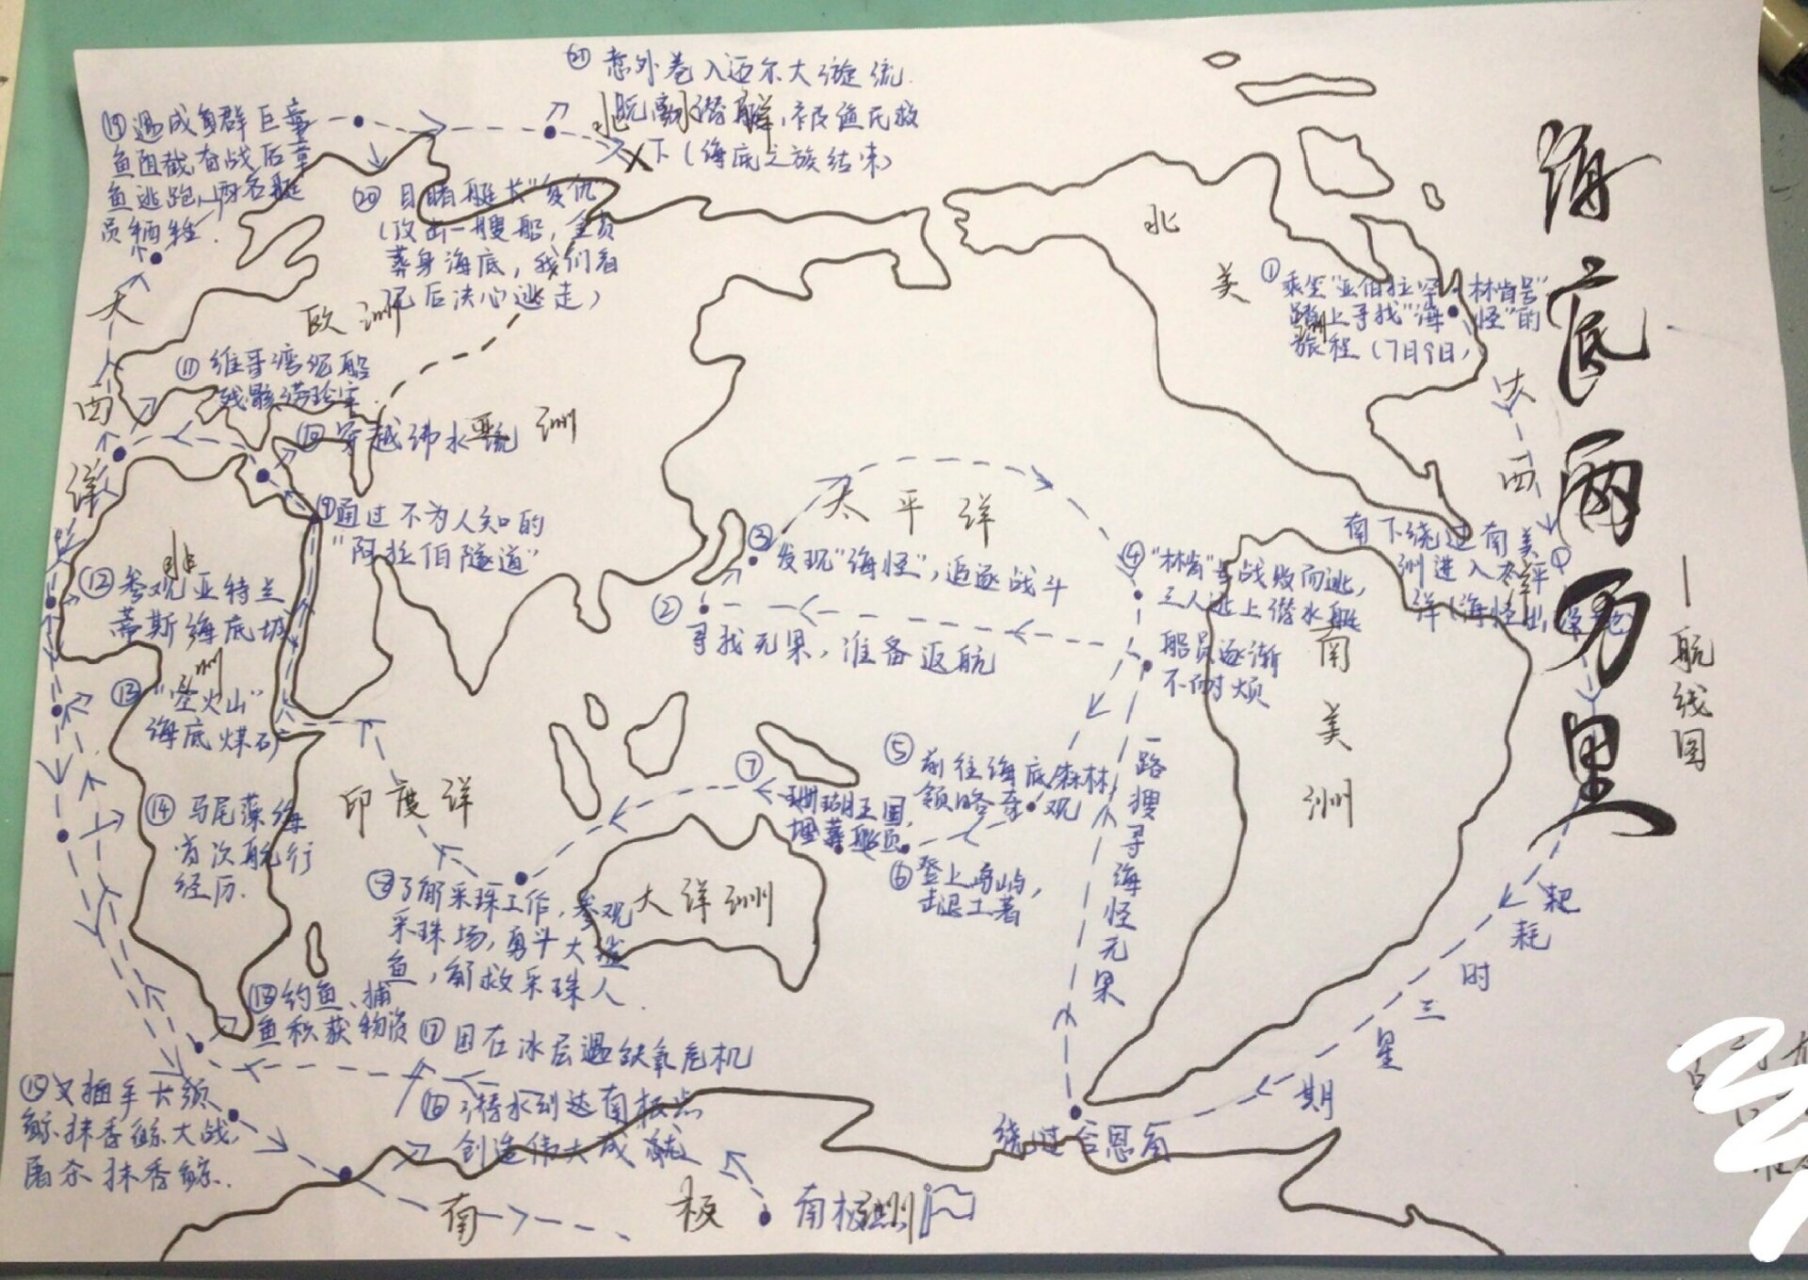 海底两万里
—航线图
①乘坐"亚伯拉罕·林肯号"
踏上寻找"海怪"的
旅程(7月9日)
南下绕过南美
洲进入太平
洋(海怪出没地)
耗时三星期
绕过合恩角
一路搜寻海怪无果
船员逐渐
不耐烦
②
寻找无果，准备返航
③
发现"海怪"，追逐战斗
④"林肯"号战败而逃，
三人逃上潜水艇
⑤前往海底森林，
领略奇观
⑥登上岛屿，
击退土著
⑦
珊瑚王国，
埋葬艇员
⑧了解采珠工作，参观
采珠场，勇斗大鲨
鱼，解救采珠人.
⑨通过不为人知的
"阿拉伯隧道"
⑩穿越沸水流
⑪维哥湾沉船
残骸捞珍宝.
⑫参观亚特兰
蒂斯海底城
⑬"空火山"
海底煤矿
⑭马尾藻海
首次航行
经历.
⑮又插手长须
鲸抹香鲸大战，
屠杀抹香鲸.
⑯潜水到达南极点
创造伟大成就
⑰困在冰层遇缺氧危机
⑱钓鱼、捕
鱼积获物资
⑲遇成鱼群巨章
鱼阻截，奋战后章
鱼逃跑，两名艇
员牺牲.
⑳目睹艇长"复仇
(攻击一艘船，全员
葬身海底，我们看
完后决心逃走)
㉑意外卷入迈尔大漩流.
脱离潜艇，被渔民救
下(海底之旅结束)
北
洋
大西洋
欧洲
亚洲
非洲
印度洋
太平洋
大洋洲
北美洲
大西洋
南美洲
南极洲
南极